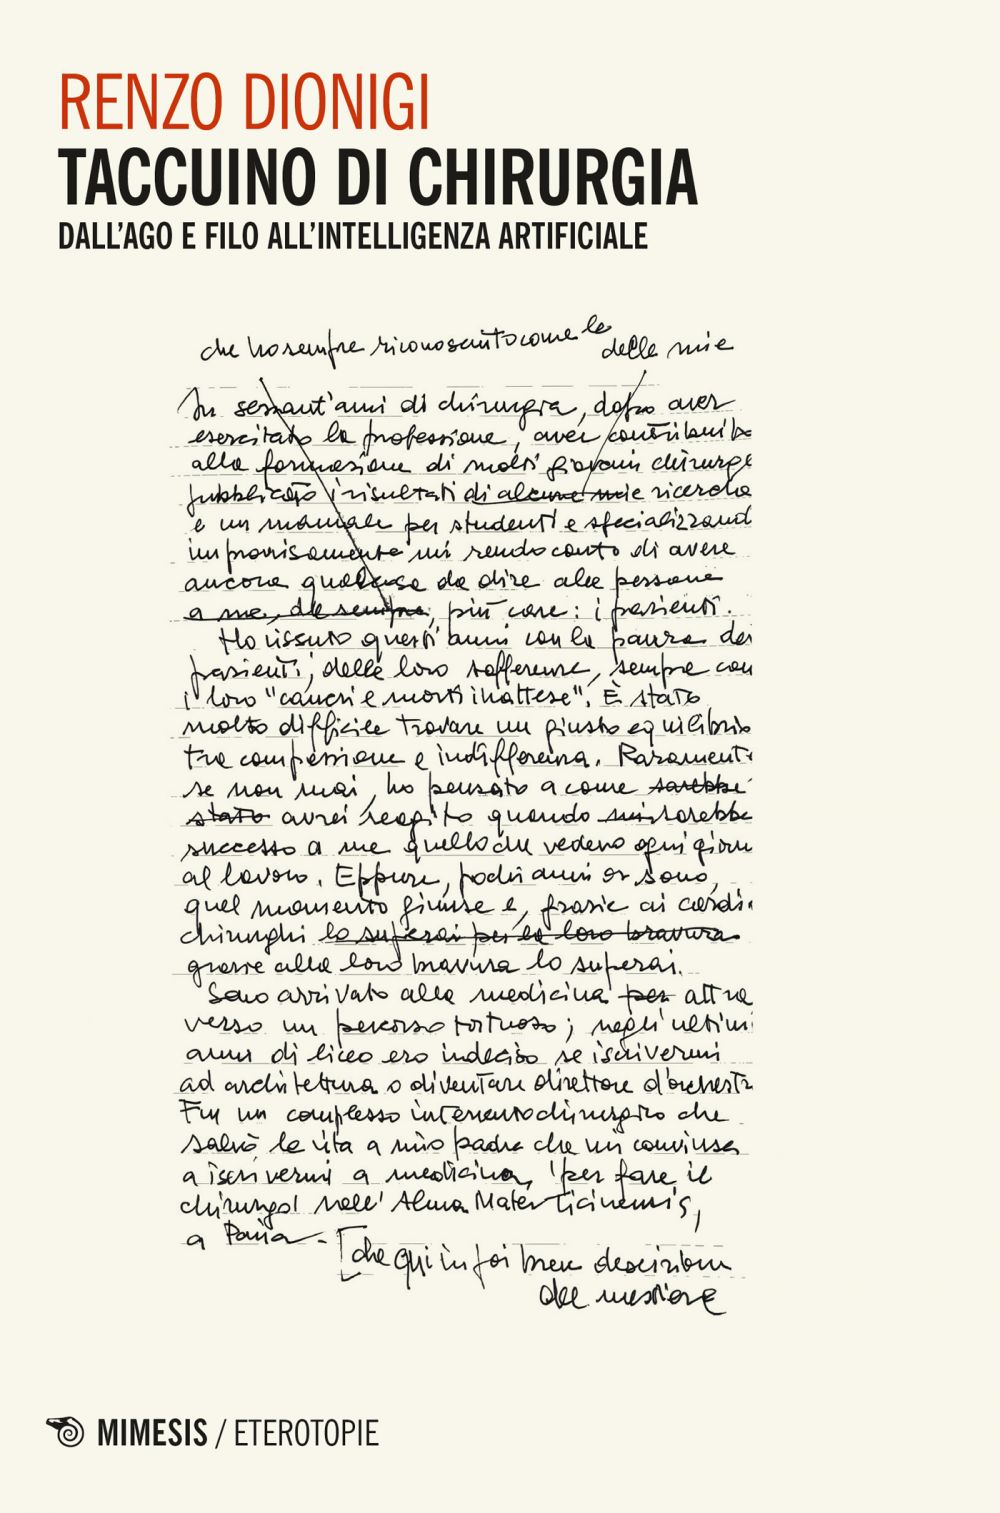 RENZO DIONIGI
TACCUINO DI CHIRURGIA
DALL'AGO E FILO ALL'INTELLIGENZA ARTIFICIALE
che ho sempre riconosciuto come le
delle mie
In sessant'anni di chirurgia, dopo aver
esercitato la professione, aver contribuito
alla formazione di molti giovani chirurghi
pubblicato i risultati di alcune mie ricerche
e un manuale per studenti e specializzand
improvvisamente mi rendo conto di avere
ancora qualcosa da dire alle persone
a me, da sempre, più care: i pazienti.
Ho vissuto questi anni con la paura dei
pazienti, delle loro sofferenze, sempre con
i loro "cancri e morti inattese". È stato
molto difficile trovare un giusto equilibrio
tra compassione e indifferenza. Raramente
se non mai, ho pensato a come sarebbe
stato avrei reagito quando mi sarebbe
successo a me quello che vedevo ogni giorn
al lavoro. Eppure, pochi anni or sono,
quel momento giunse e, grazie ai cardi
chirurghi lo superai per la loro bravura
grazie alla loro bravura lo superai.
Sono arrivato alla medicina per attra
verso un percorso tortuoso; negli ultimi
anni di liceo ero indeciso se iscrivermi
ad architettura o diventare direttore d'orchestr
Fu un complesso intervento chirurgico che
salvò la vita a mio padre che mi convinse
a iscrivermi a medicina, 'per fare il
chirurgo' nell'Alma Mater Ticinensis,
a Pavia.
[che qui in poi breve descrizione
del mestiere
MIMESIS / ETEROTOPIE